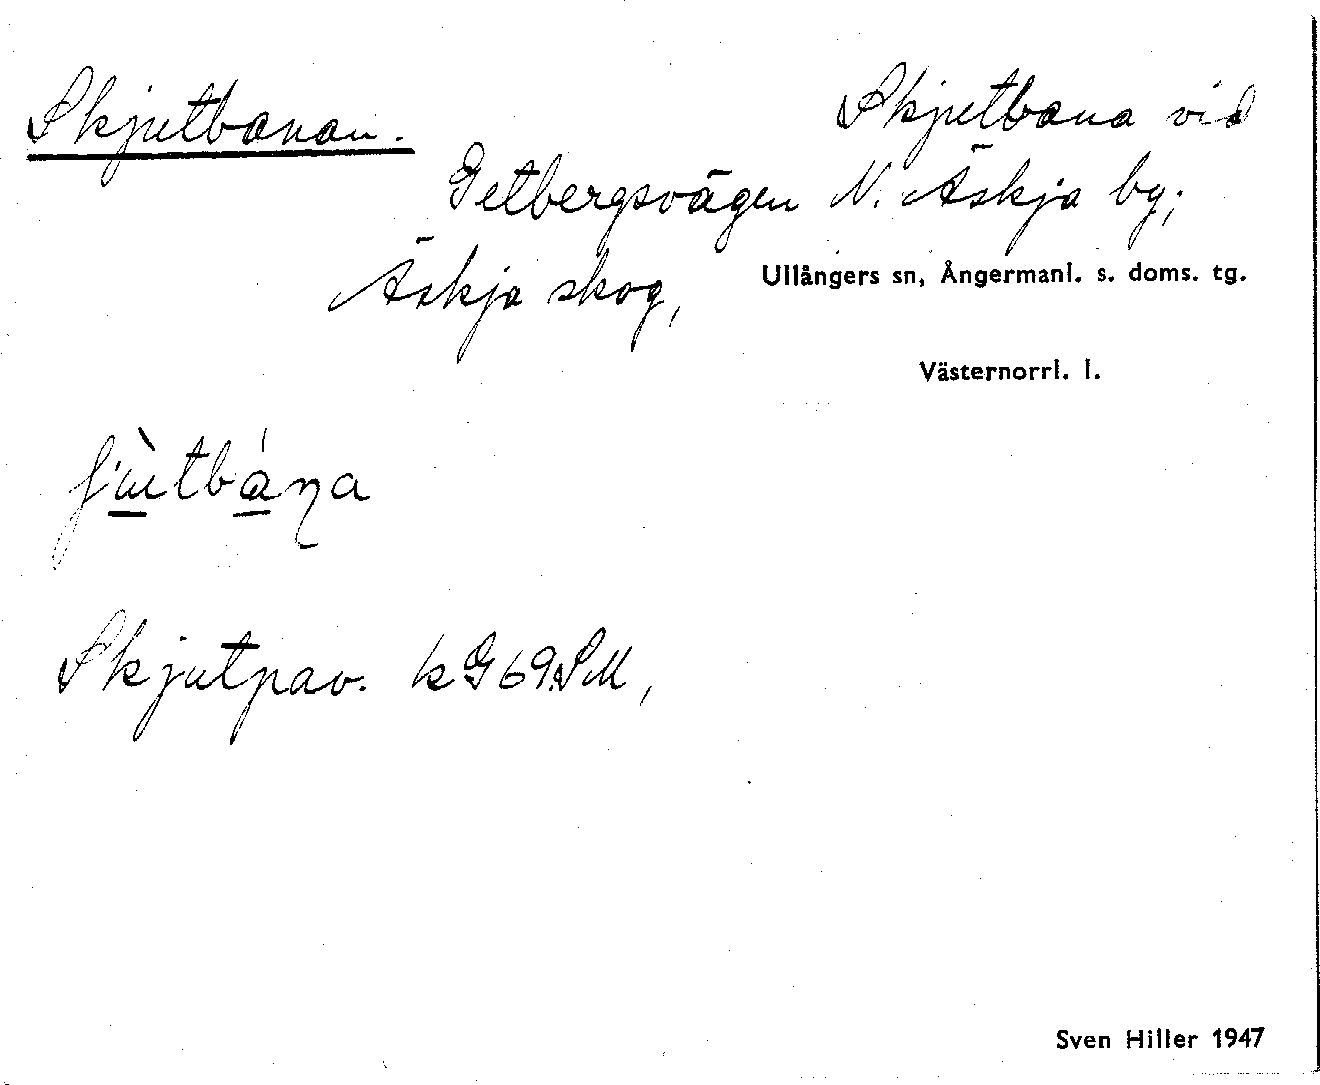 Skjutbanan.
Skjutbana vid
Getbergsvägen N. Äskja by;
Äskja skog,
Ullångers sn, Ångermanl. s. doms. tg.
Västernorrl. l.
Skjutpav. kG69.SM,
Sven Hiller 1947